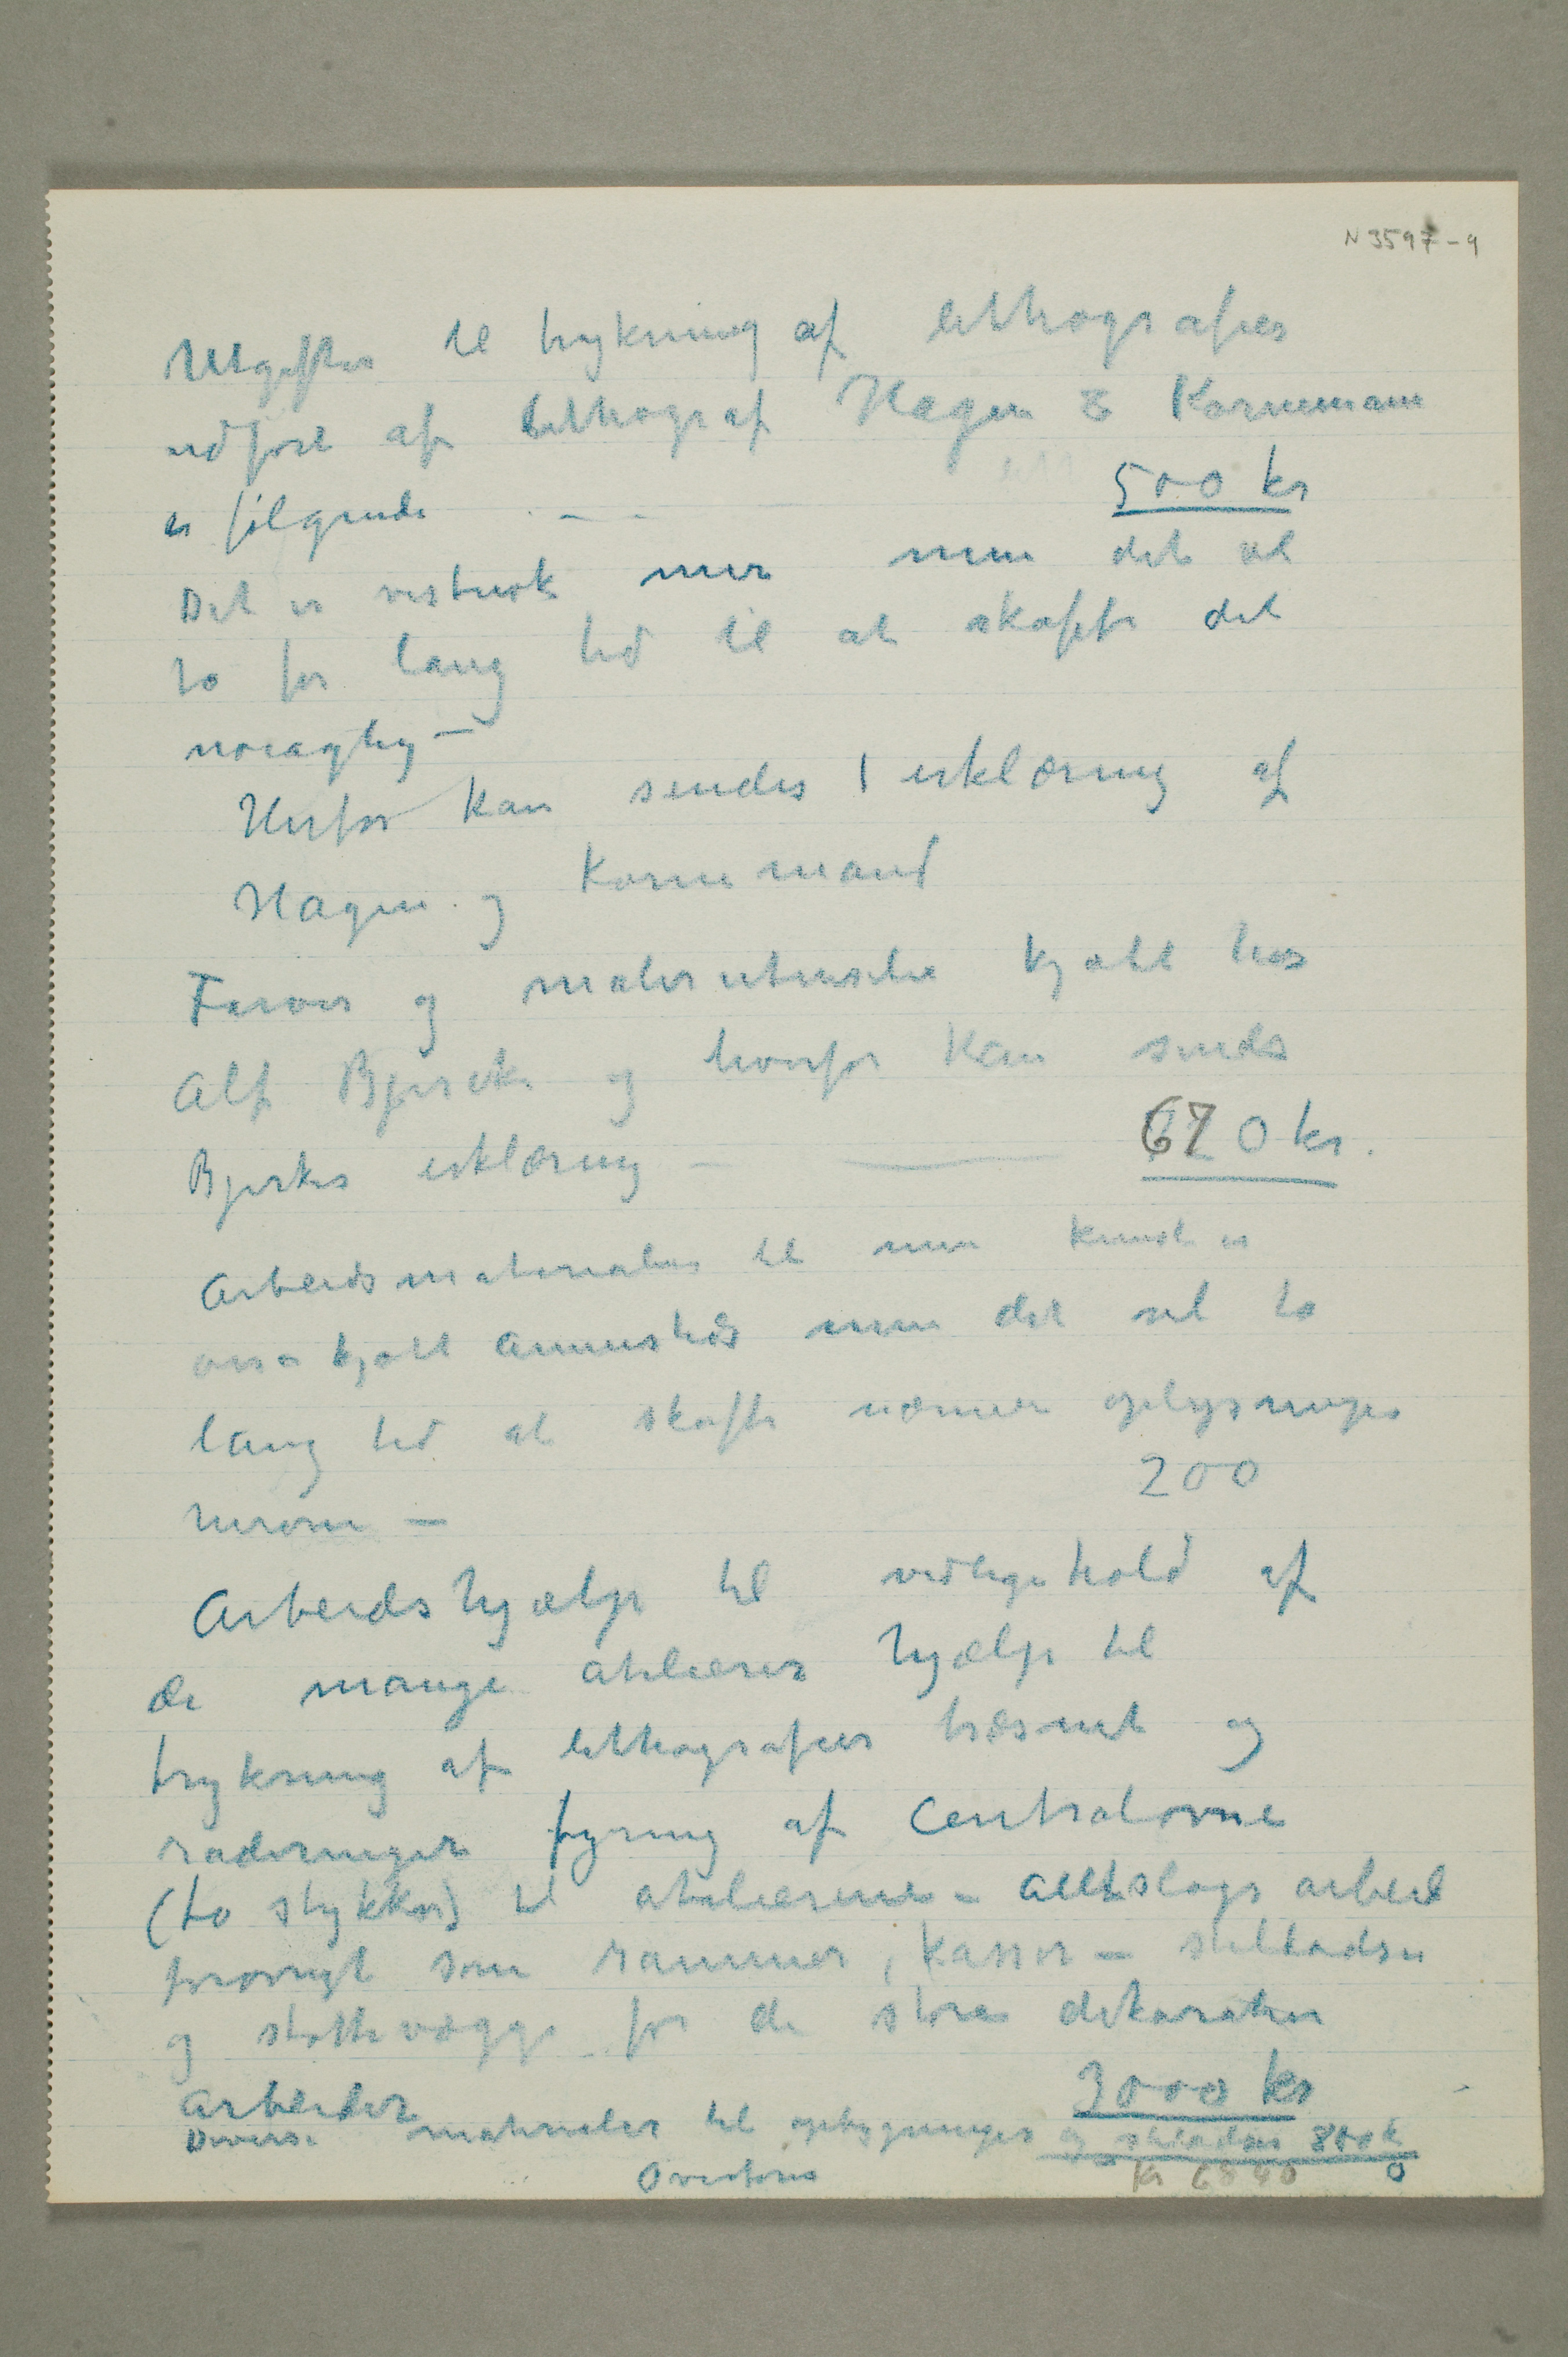 N 3597-9
Utgifter til trykning af lithografier
udført af lithograf Hagen & Kornemann
er følgende - - - 500 kr
Det er vistnok mer men det vil
ta for lang tid til at skaffe det
nøiagtig –
Herfor kan sendes 1 erklæring af
Hagen og Kornemand
Farver og malerutensilier kjøbt hos
Alf Bjercke og hvorfor kan sendes
Bjerkes erklæring – 670 kr.
Arbeidsmaterialier til min kunst er
osså kjøbt annensteds men det vil ta
lang tid at skaffe nærmere oplysninger
herom – 200
Arbeidshjælp til vedligehold af
de mange atelierer hjælp til
trykning af lithografier træsnit og
raderinger fyring af Centralovne
(to stykker) til atelierene – alleslags arbeid
forøvrigt som rammer, kasser – stilladser
og støttevægge for de store dekorative
arbeider 3000 kr
Diverse materialer til opbygninger og stiladser 800 k
Kr 0